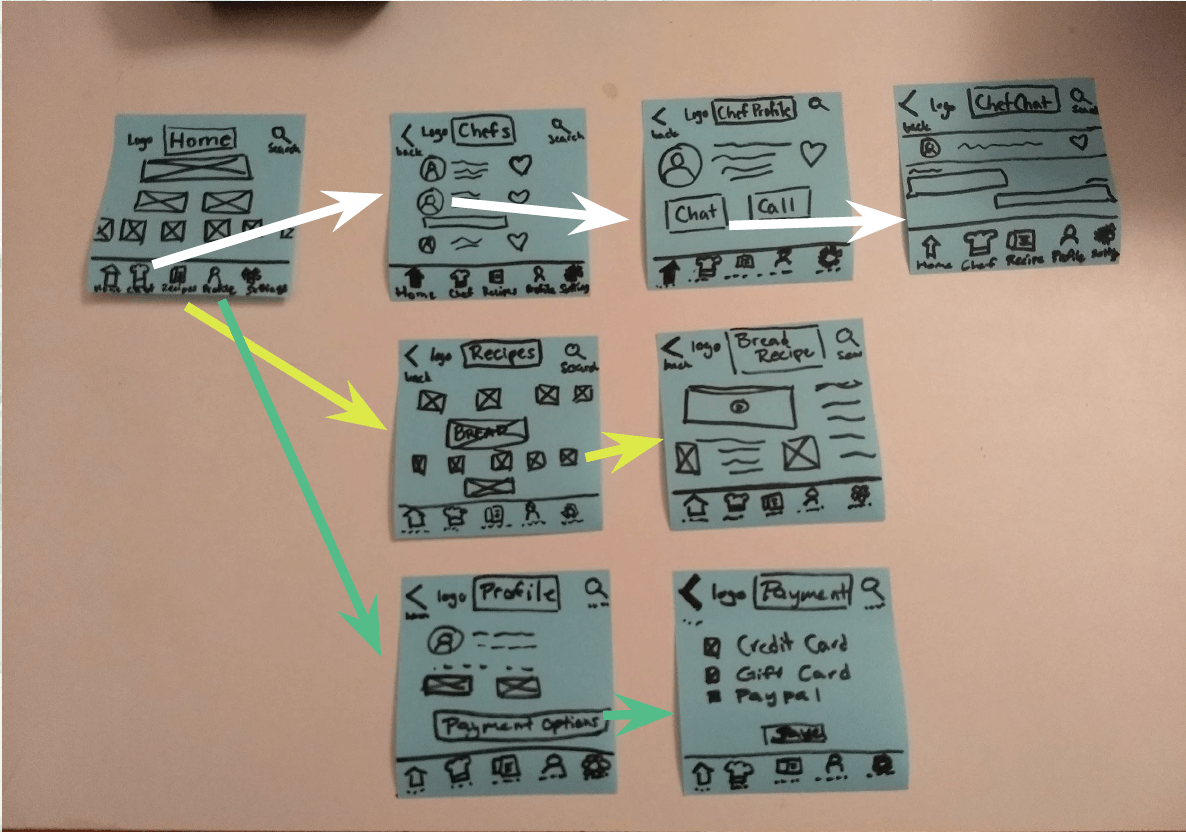 Logo Home
Search
Home Chef Recipes Profile Settings
Logo Chefs
back Search
Home Chef Recipes Profile Setting
Logo Chef Profile
back
Chat Call
logo Chef Chat
back Search
Home Chef Recipe Profile Setting
logo Recipes
back Search
BREAD
logo Bread
Recipe
back Sear
logo Profile
Payment Options
logo Payment
Credit Card
Gift Card
Paypal
Save